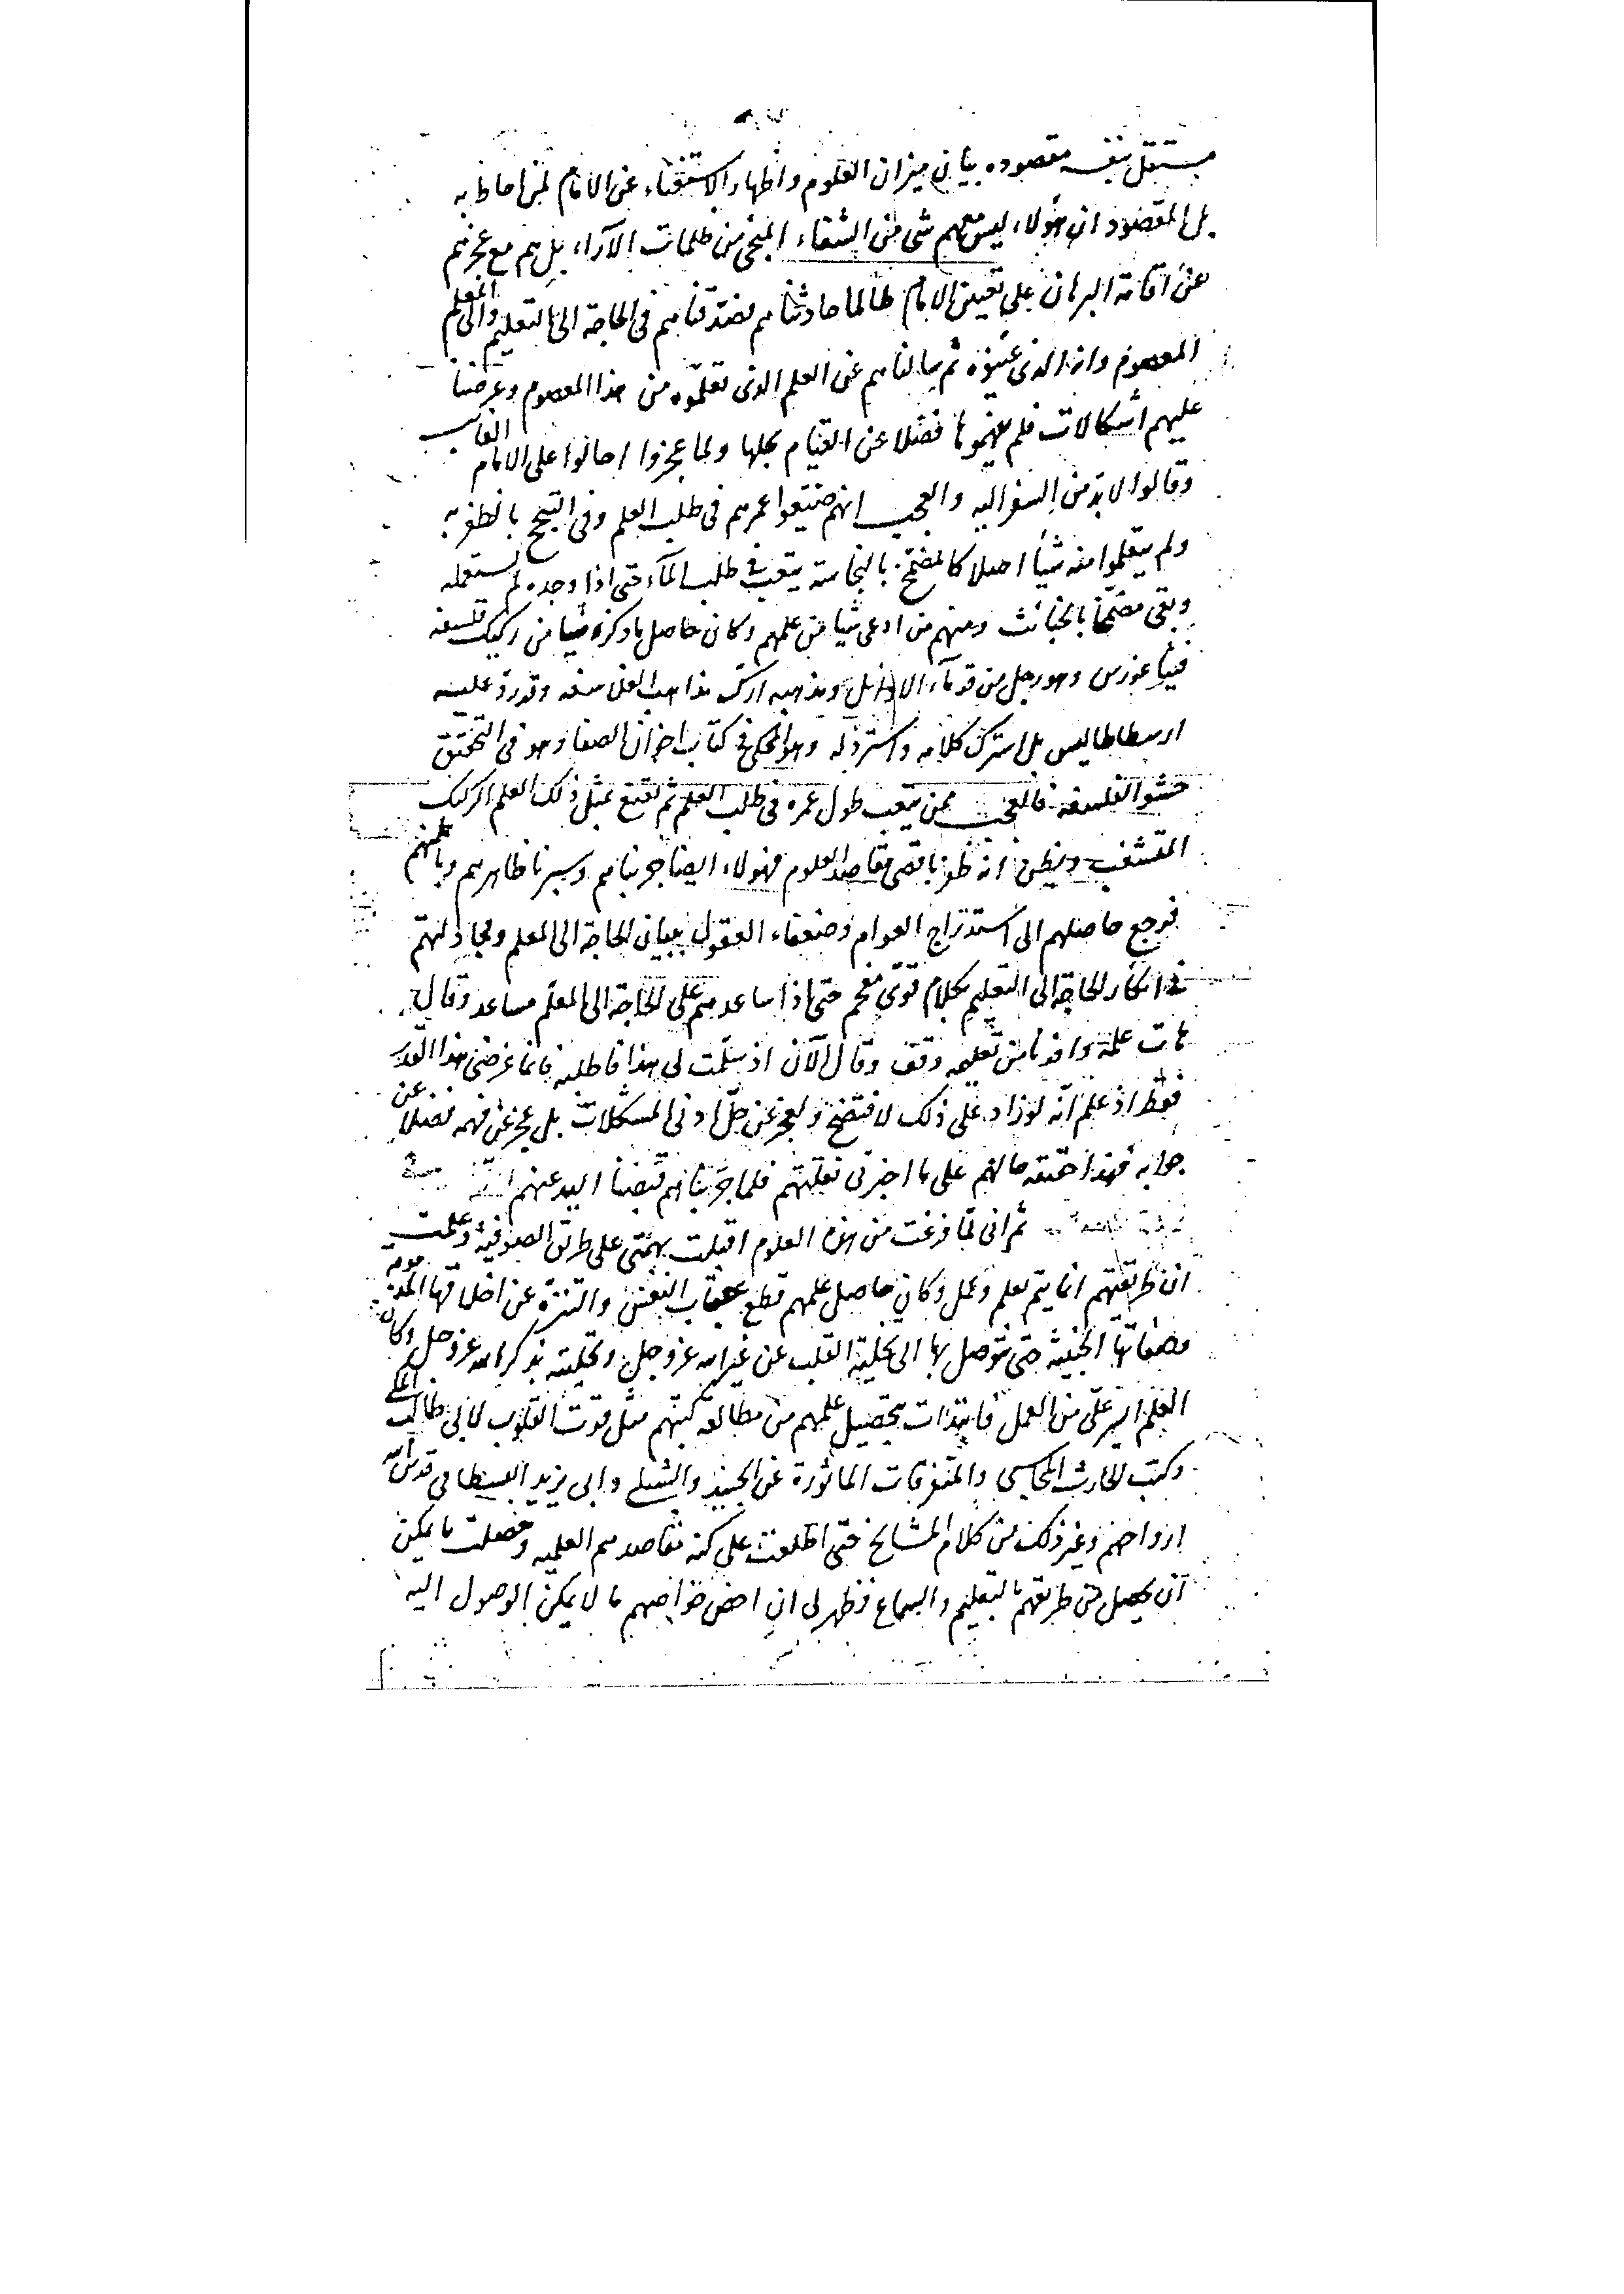 مستقل بنفسه مقصوده بيان ميزان العلوم واظهار الاستغناء عن الامام لمن احاط به
بل المقصود ان هؤلاء ليس معهم شئ من الشفاء المنجى من ظلمات الآراء بل هم مع عجزهم
عن اقامة البرهان على تعيين الامام طالما حادثناهم فصدقناهم فى الحاجة الى التعليم والى المعلم
المعصوم وانه الذى عينوه ثم سالناهم عن العلم الذى تعلموه من هذا المعصوم وعرضنا
عليهم اشكالات فلم يفهموها فضلا عن القيام بحلها ولما عجزوا احالوا على الامام الغائب
وقالوا لا بد من السفر اليه والعجب انهم ضيعوا عمرهم فى طلب العلم وفى التبجح بالظفر به
ولم يتعلموا منه شيأ اصلا كالمضمخ بالنجاسة يتعب فى طلب المآء حتى اذا وجده لم يستعمله
وبقى مضمخا بالخبائث ومنهم من ادعى شيا من علمهم وكان حاصل ما ذكره شيا من ركيك فلسفه
فيثاغورس وهو رجل من قدمآء الاوائل ومذهبه ارك مذاهب الفلاسفه وقد رد عليه
ارسطاطاليس بل استرك كلامه واسترذله وهو المحكى فى كتاب اخوان الصفا وهو فى التحقيق
حشو الفلسفه فالعجب ممن يتعب طول عمره فى طلب العلم ثم يقنع بمثل ذلك العلم الركيك
المتشعب ويظن انه ظفر باقصى مقاصد العلوم فهؤلاء ايضا جربناهم وسبرنا ظاهرهم وباطنهم
فرجع حاصلهم الى استدراج العوام وضعفاء العقول ببيان الحاجة الى المعلم ومجادلتهم
فى انكار الحاجة الى التعليم بكلام قوى مفحم حتى اذا ساعدهم على الحاجة الى المعلم مساعد وقال
هات علمه وافدنا من تعليمه وقف وقال الآن اذ سلمت لى هذا فاطلبه فانما غرضى هذا القدر
فقط اذ علم انه لو زاد على ذلك لافتضح ولعجز عن حل ادنى المشكلات بل عجز عن فهمه فضلا عن
جوابه فهذا حقيقه حالهم على ما اخبرتى تقلتهم فلما جربناهم قبضنا اليد عنهم
ثم انى لما فرغت من هذه العلوم اقبلت بهمتى على طريق الصوفية وعلمت
ان طريقتهم انما يتم بعلم وعمل وكان حاصل علمهم قطع عقاب النفس والتنزه عن اخلاقها المذمومة
وصفاتها الخبيثه حتى يتوصل بها الى تخلية القلب عن غير الله عز وجل وتحليته بذكر الله عز وجل وكان
العلم ايسر على من العمل فابتدات بتحصيل علمهم من مطالعه كتبهم مثل قوت القلوب لابى طالب المكى
وكتب الحارث المحاسبى والمتفرقات الماثورة عن الجنيد والشبلى وابى يزيد البسطامى قدس الله
ارواحهم وغير ذلك من كلام المشايخ حتى اطلعت على كنه مقاصدهم العلميه وحصلت ما يمكن
ان يحصل من طريقهم بالتعليم والسماع فظهر لى ان اخص خواصهم ما لا يمكن الوصول اليه